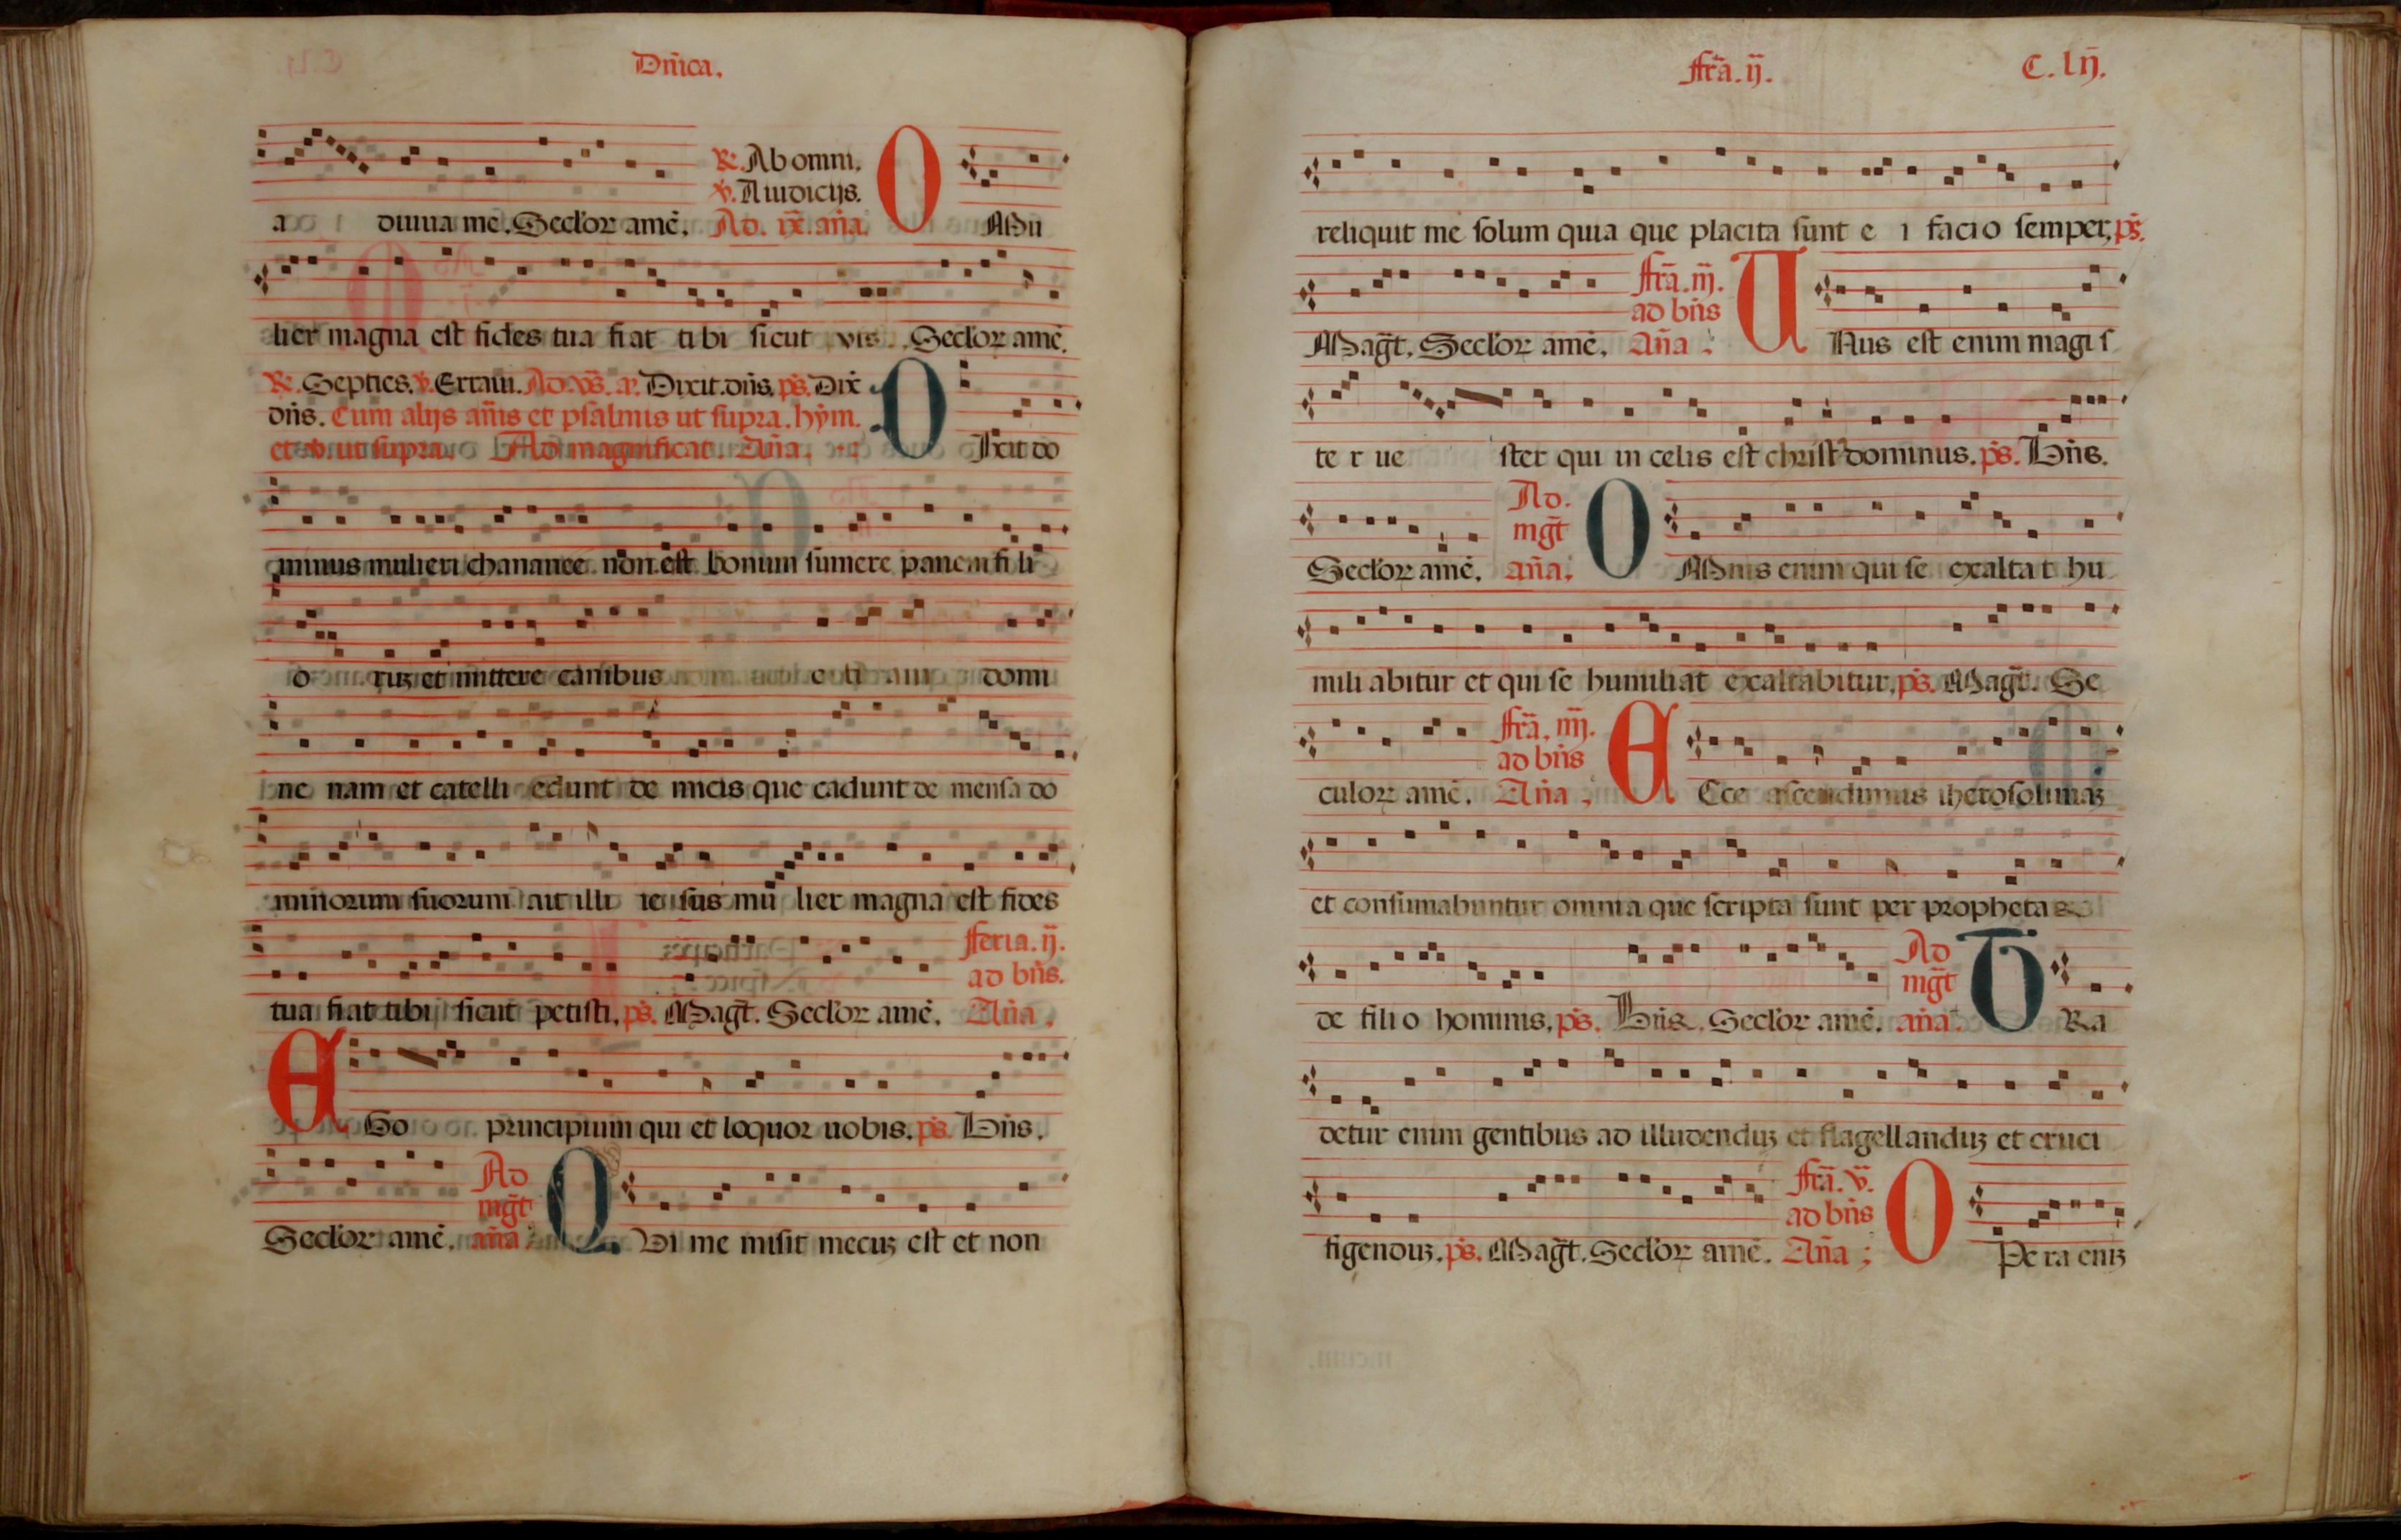 Dñica.
a diuua me. Seclor amẽ.
℟. Ab omni.
℣. A iudicijs.
Ad. ix. añã. O Mu
lier magna est fides tua fiat tibi sicut vis. Seclor amẽ.
℟. Septies. ℣. Erraui. Ad. v̾s. a. Dixit. dñs. ps̃. Dix̃
dñs. Cum alijs añis et psalmis ut supra. hym̃.
et ℣. ut supra. Ad magnificat. Añã. D Ixit do
minus mulieri chananee non est bonum sumere panem fi li
o ruʒ et mittere canibus
domi
ne nam et catelli edunt de micis que cadunt de mensa do
minorum suorum ait illi iesus mu lier magna est fides
tua fiat tibi sicut petisti. ps̃. Magt̃. Seclor amẽ.
Feria. ij.
ad bñs.
Añã.
E Go principium qui et loquor uobis. ps̃. Bñs.
Seclor amẽ.
Ad
mgt̃
añã. Q Vi me misit mecuʒ est et non
Frã. ij. C. lij.
reliquit me solum quia que placita sunt e i facio semper. ps̃.
Magt̃. Seclor amẽ.
Frã. iij.
ad bñs
Añã: U Nus est enim magis
te r ue ster qui in celis est christ⁹ dominus. ps̃. Bñs.
Seclor amẽ.
Ad.
mgt̃
añã. O Mnis enim qui se exaltat hu
mili abitur et qui se humiliat exaltabitur. ps̃. Magt̃. Se
culor amẽ.
Frã. iiij.
ad bñs
Añã. E Cce ascendimus iherosolimaʒ
et consumabuntur omnia que scripta sunt per prophetas
de fili o hominis. ps̃. Bñs. Seclor amẽ.
Ad
mgt̃
añã. T Ra
detur enim gentibus ad illudenduʒ et flagellanduʒ et cruci
figenduʒ. ps̃. Magt̃. Seclor amẽ.
Frã. v.
ad bñs
Añã: O Pe ra eniʒ